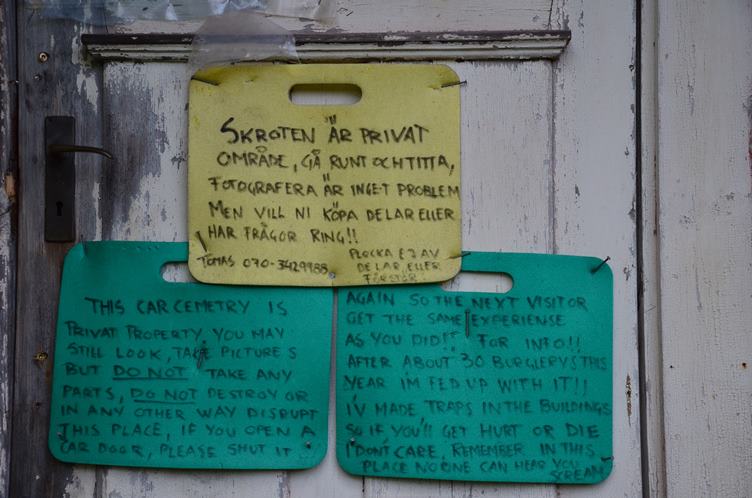 SKROTEN ÄR PRIVAT
OMRÅDE, GÅ RUNT OCH TITTA,
FOTOGRAFERA ÄR INGET PROBLEM
MEN VILL NI KÖPA DELAR ELLER
HAR FRÅGOR RING!!
TOMAS 070-3429988
PLOCKA EJ AV
DELAR ELLER
FÖRSTÖR.
THIS CAR CEMETRY IS
PRIVAT PROPERTY YOU MAY
STILL LOOK, TAKE PICTURES
BUT DO NOT TAKE ANY
PARTS, DO NOT DESTROY OR
IN ANY OTHER WAY DISRUPT
THIS PLACE, IF YOU OPEN A
CAR DOOR, PLEASE SHUT IT
AGAIN SO THE NEXT VISITOR
GET THE SAME EXPERIENSE
AS YOU DID!! FOR INFO!!
AFTER ABOUT 30 BURGLERYS THIS
YEAR I'M FED UP WITH IT!!
I'V MADE TRAPS IN THE BUILDINGS
SO IF YOU'LL GET HURT OR DIE
I DON'T CARE, REMEMBER IN THIS
PLACE NO ONE CAN HEAR YOU
SCREAM